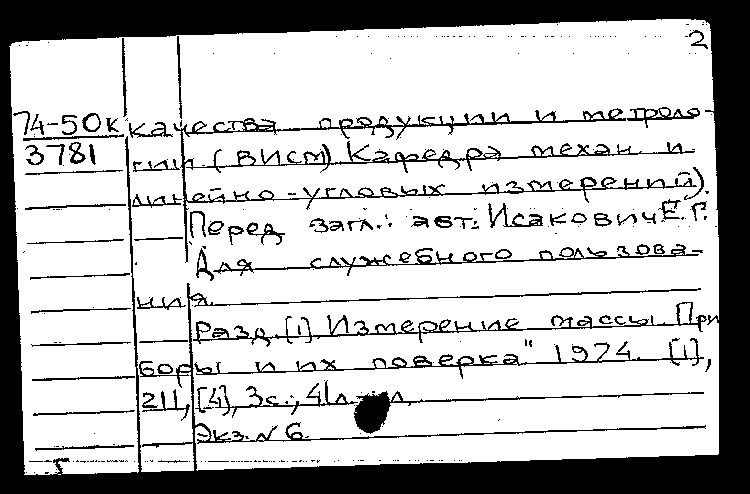 2
74-50к качества продукции и метроло-
3781 гии (ВИСМ) Кафедра механ и
линейно-угловых измерений).
Перед загл.: авт: Исакович Е.Г.
Для служебного пользова-
ния.
Разд. [1]. Измерение массы. При
боры и их поверка" 1974. [1],
211, [4], 3с., 41л.
Экз. № 6.